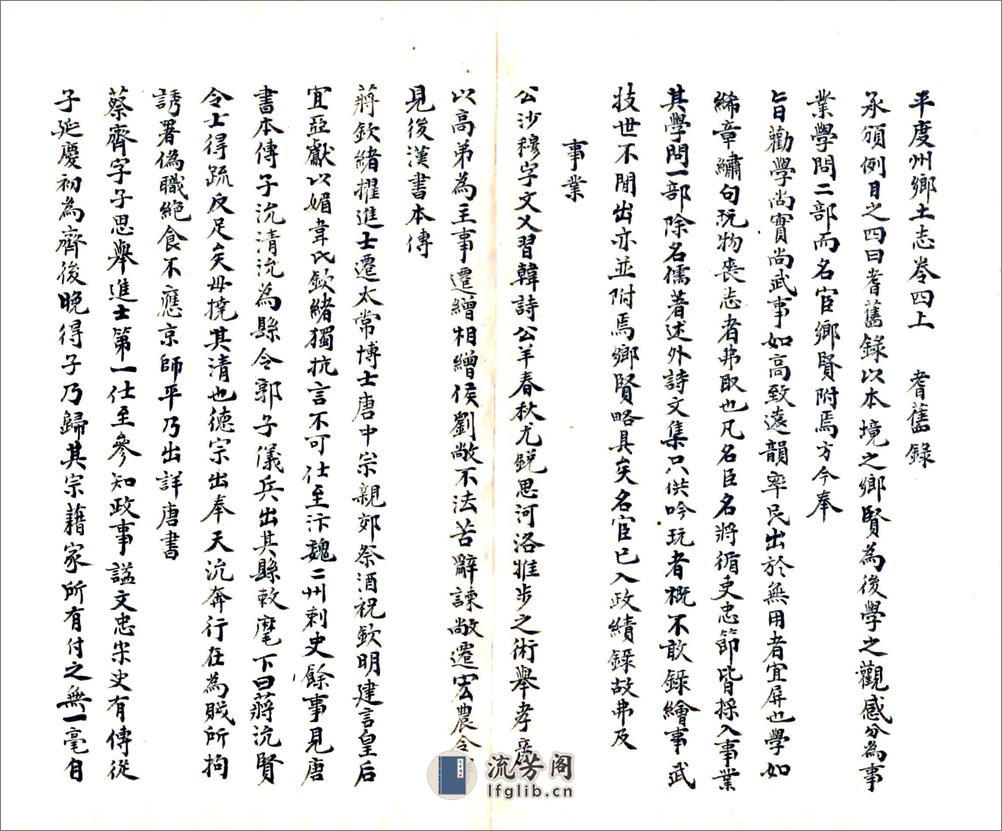 平度州鄉土志卷四上　耆舊錄
承頒例目之四曰耆舊錄以本境之鄉賢為後學之觀感分為事
業學問二部而名宦鄉賢附焉方今奉
旨勸學尚實尚武事如高致遠韻率民出於無用者宜屏也學如
絺章繡句玩物喪志者弗取也凡名臣名將循吏忠節皆採入事業
其學問一部除名儒著述外詩文集只供吟玩者概不敢錄繪事武
技世不間出亦並附焉鄉賢略具矣名宦已入政績錄故弗及
事業
公沙穆字文乂習韓詩公羊春秋尤銳思河洛推步之術舉孝廉
以高弟為主事遷繒相繒侯劉敞不法苦辭諫敞遷宏農令
見後漢書本傳
蔣欽緒擢進士遷太常博士唐中宗親郊祭酒祝欽明建言皇后
宜亞獻以媚韋氏欽緒獨抗言不可仕至汴魏二州刺史餘事見唐
書本傳子沇清沇為縣令郭子儀兵出其縣敕麾下曰蔣沇賢
令士得蔬反足矣毋撓其清也德宗出奉天沇奔行在為賊所拘
誘署偽職絕食不應京師平乃出詳唐書
蔡齊字子思舉進士第一仕至參知政事謚文忠宋史有傳從
子延慶初為齊後晚得子乃歸其宗藉家所有付之無一毫自
流芳阁
lfglib.cn